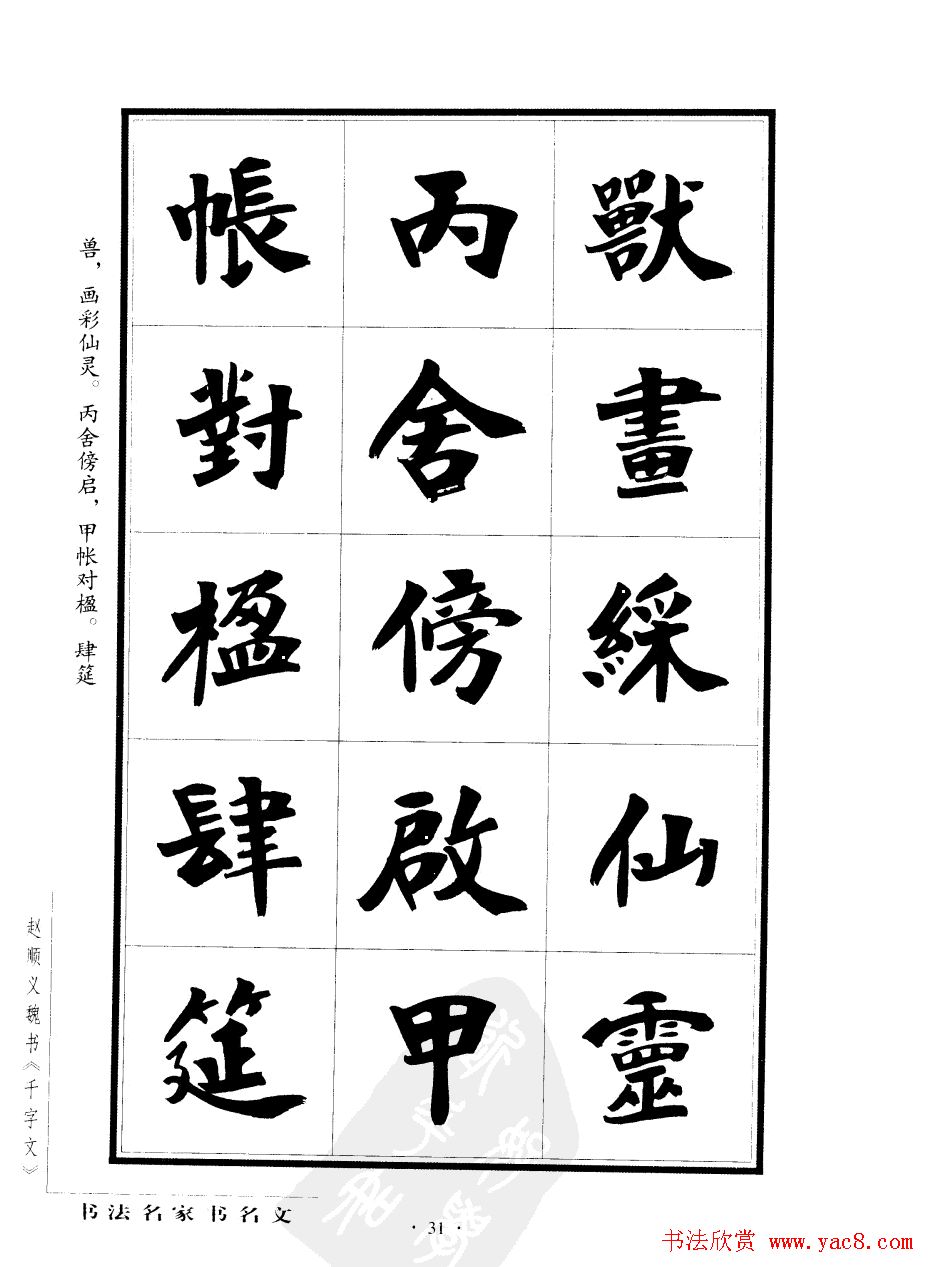 獸畫綵仙靈
丙舍傍啟甲
帳對楹肆筵
兽，画彩仙灵。丙舍傍启，甲帐对楹。肆筵
赵顺义魏书《千字文》
书法名家书名文
·31·
书法欣赏 www.yac8.com